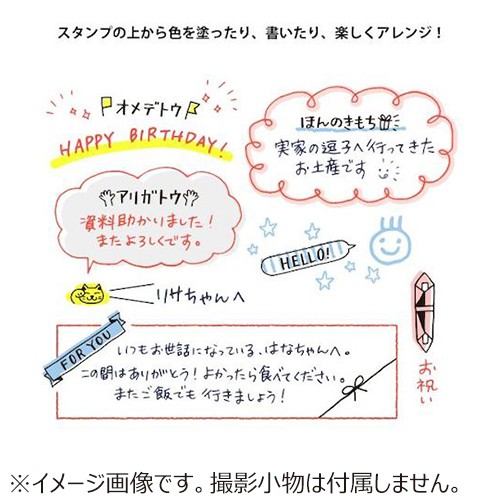 スタンプの上から色を塗ったり、書いたり、楽しくアレンジ！
オメデトウ
HAPPY BIRTHDAY!
ほんのきもち
実家の逗子へ行ってきた
お土産です
アリガトウ
資料助かりました！
またよろしくです。
HELLO!
リサちゃんへ
FOR YOU
いつもお世話になっている、はなちゃんへ。
この間はありがとう！よかったら食べてください。
またご飯でも行きましょう！
お祝い
※イメージ画像です。撮影小物は付属しません。